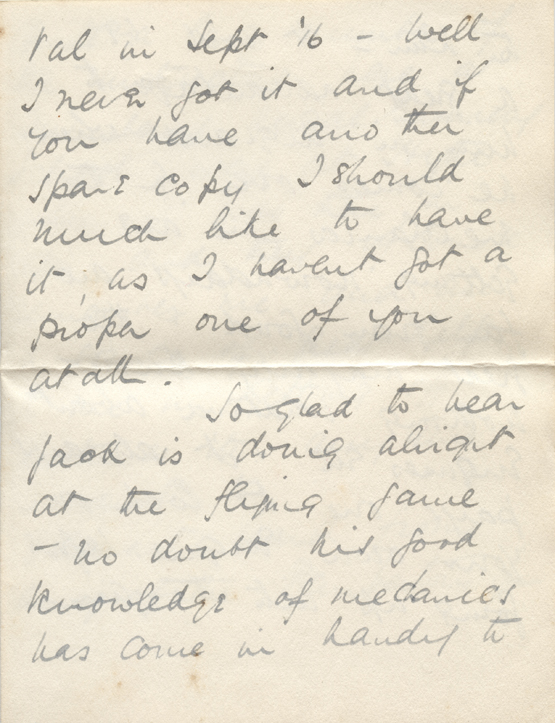 Val in Sept '16 - Well
I never got it and if
you have another
spare copy I should
much like to have
it, as I havent got a
proper one of you
atall.
So glad to hear
Jack is doing alright
at the flying game
- no doubt his good
knowledge of mechanics
has come in handy to